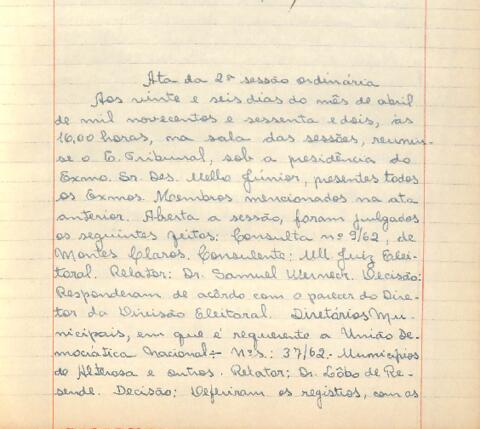 Ata da 2ª sessão ordinária
Aos vinte e seis dias do mês de abril
de mil novecentos e sessenta e dois, às
16,00 horas, na sala das sessões, reuniu-
se o E. Tribunal, sob a presidência do
Exmo. Sr. Des. Mello Júnior, presentes todos
os Exmos. Membros mencionados na ata
anterior. Aberta a sessão, foram julgados
os seguintes feitos: Consulta nº 9/62, de
Montes Claros. Consulente: MM. Juiz Elei-
toral. Relator: Dr. Samuel Werneck. Decisão:
Responderam de acôrdo com o parecer do Dire-
tor da Divisão Eleitoral. Diretórios Mu-
nicipais, em que é requerente a União De-
mocrática Nacional:- Nºs.: 37/62 - Municípios
de Alterosa e outros. Relator: Dr. Lôbo de Re-
sende. Decisão: Deferiram os registros, com as